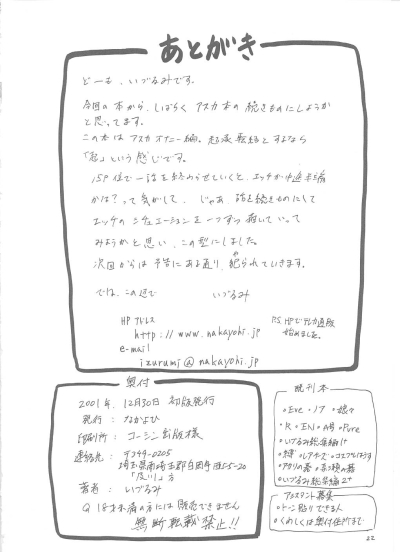 あとがき
どーも、いづるみです。
今回の本から、しばらくアスカ本の続きものにしようか
と思ってます。
この本はアスカオナニー編。起承転結とするなら
「起」という感じです。
15P位で一話を終わらせていくと、エッチが中途半端
かな?って気がして、じゃあ、話を続きものにして
エッチのシチュエーションを一つずつ描いていって
みようかと思い、この型にしました。
次回からは予告にある通り、犯られていきます。
では、この辺で いづるみ
HPアドレス
http://www.nakayohi.jp
e-mail
izurumi@nakayohi.jp
P.S. HPで通販
始めました。
奥付
2001年、12月30日 初版発行
発行: なかよひ
印刷所: コーシン出版様
連絡先: 〒349-0205
埼玉県南埼玉郡白岡町西5-20
方
著者: いづるみ
18才未満の方には販売できません
無断転載禁止!!
既刊本
•Eve •17
•R •EN •Pure
•いづるみ総集編1
•いづるみ総集編2
アシスタント募集
•トーン貼りできる人
•くわしくは奥付住所まで
22